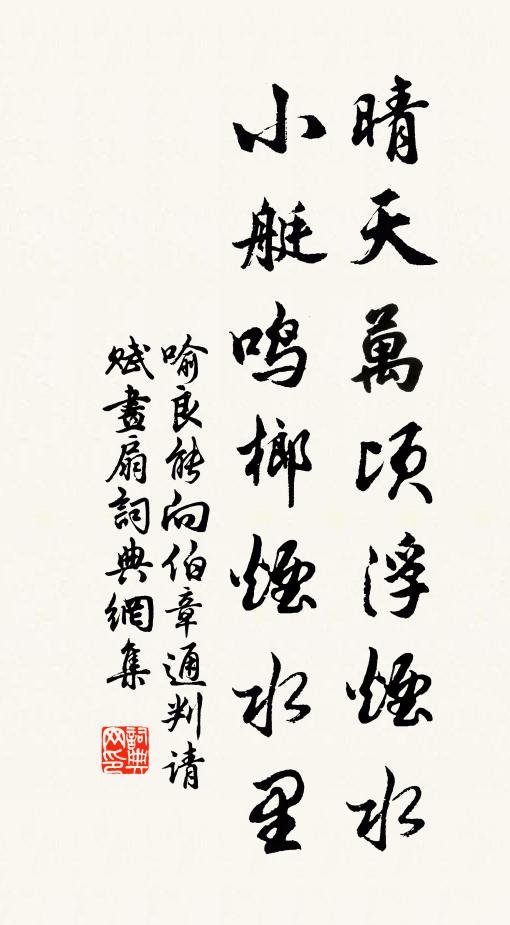 晴天萬頃浮煙水
小艇鸣榔煙水里
喻良能向伯章通判请
赋畫扇詞典網集
詞典网印